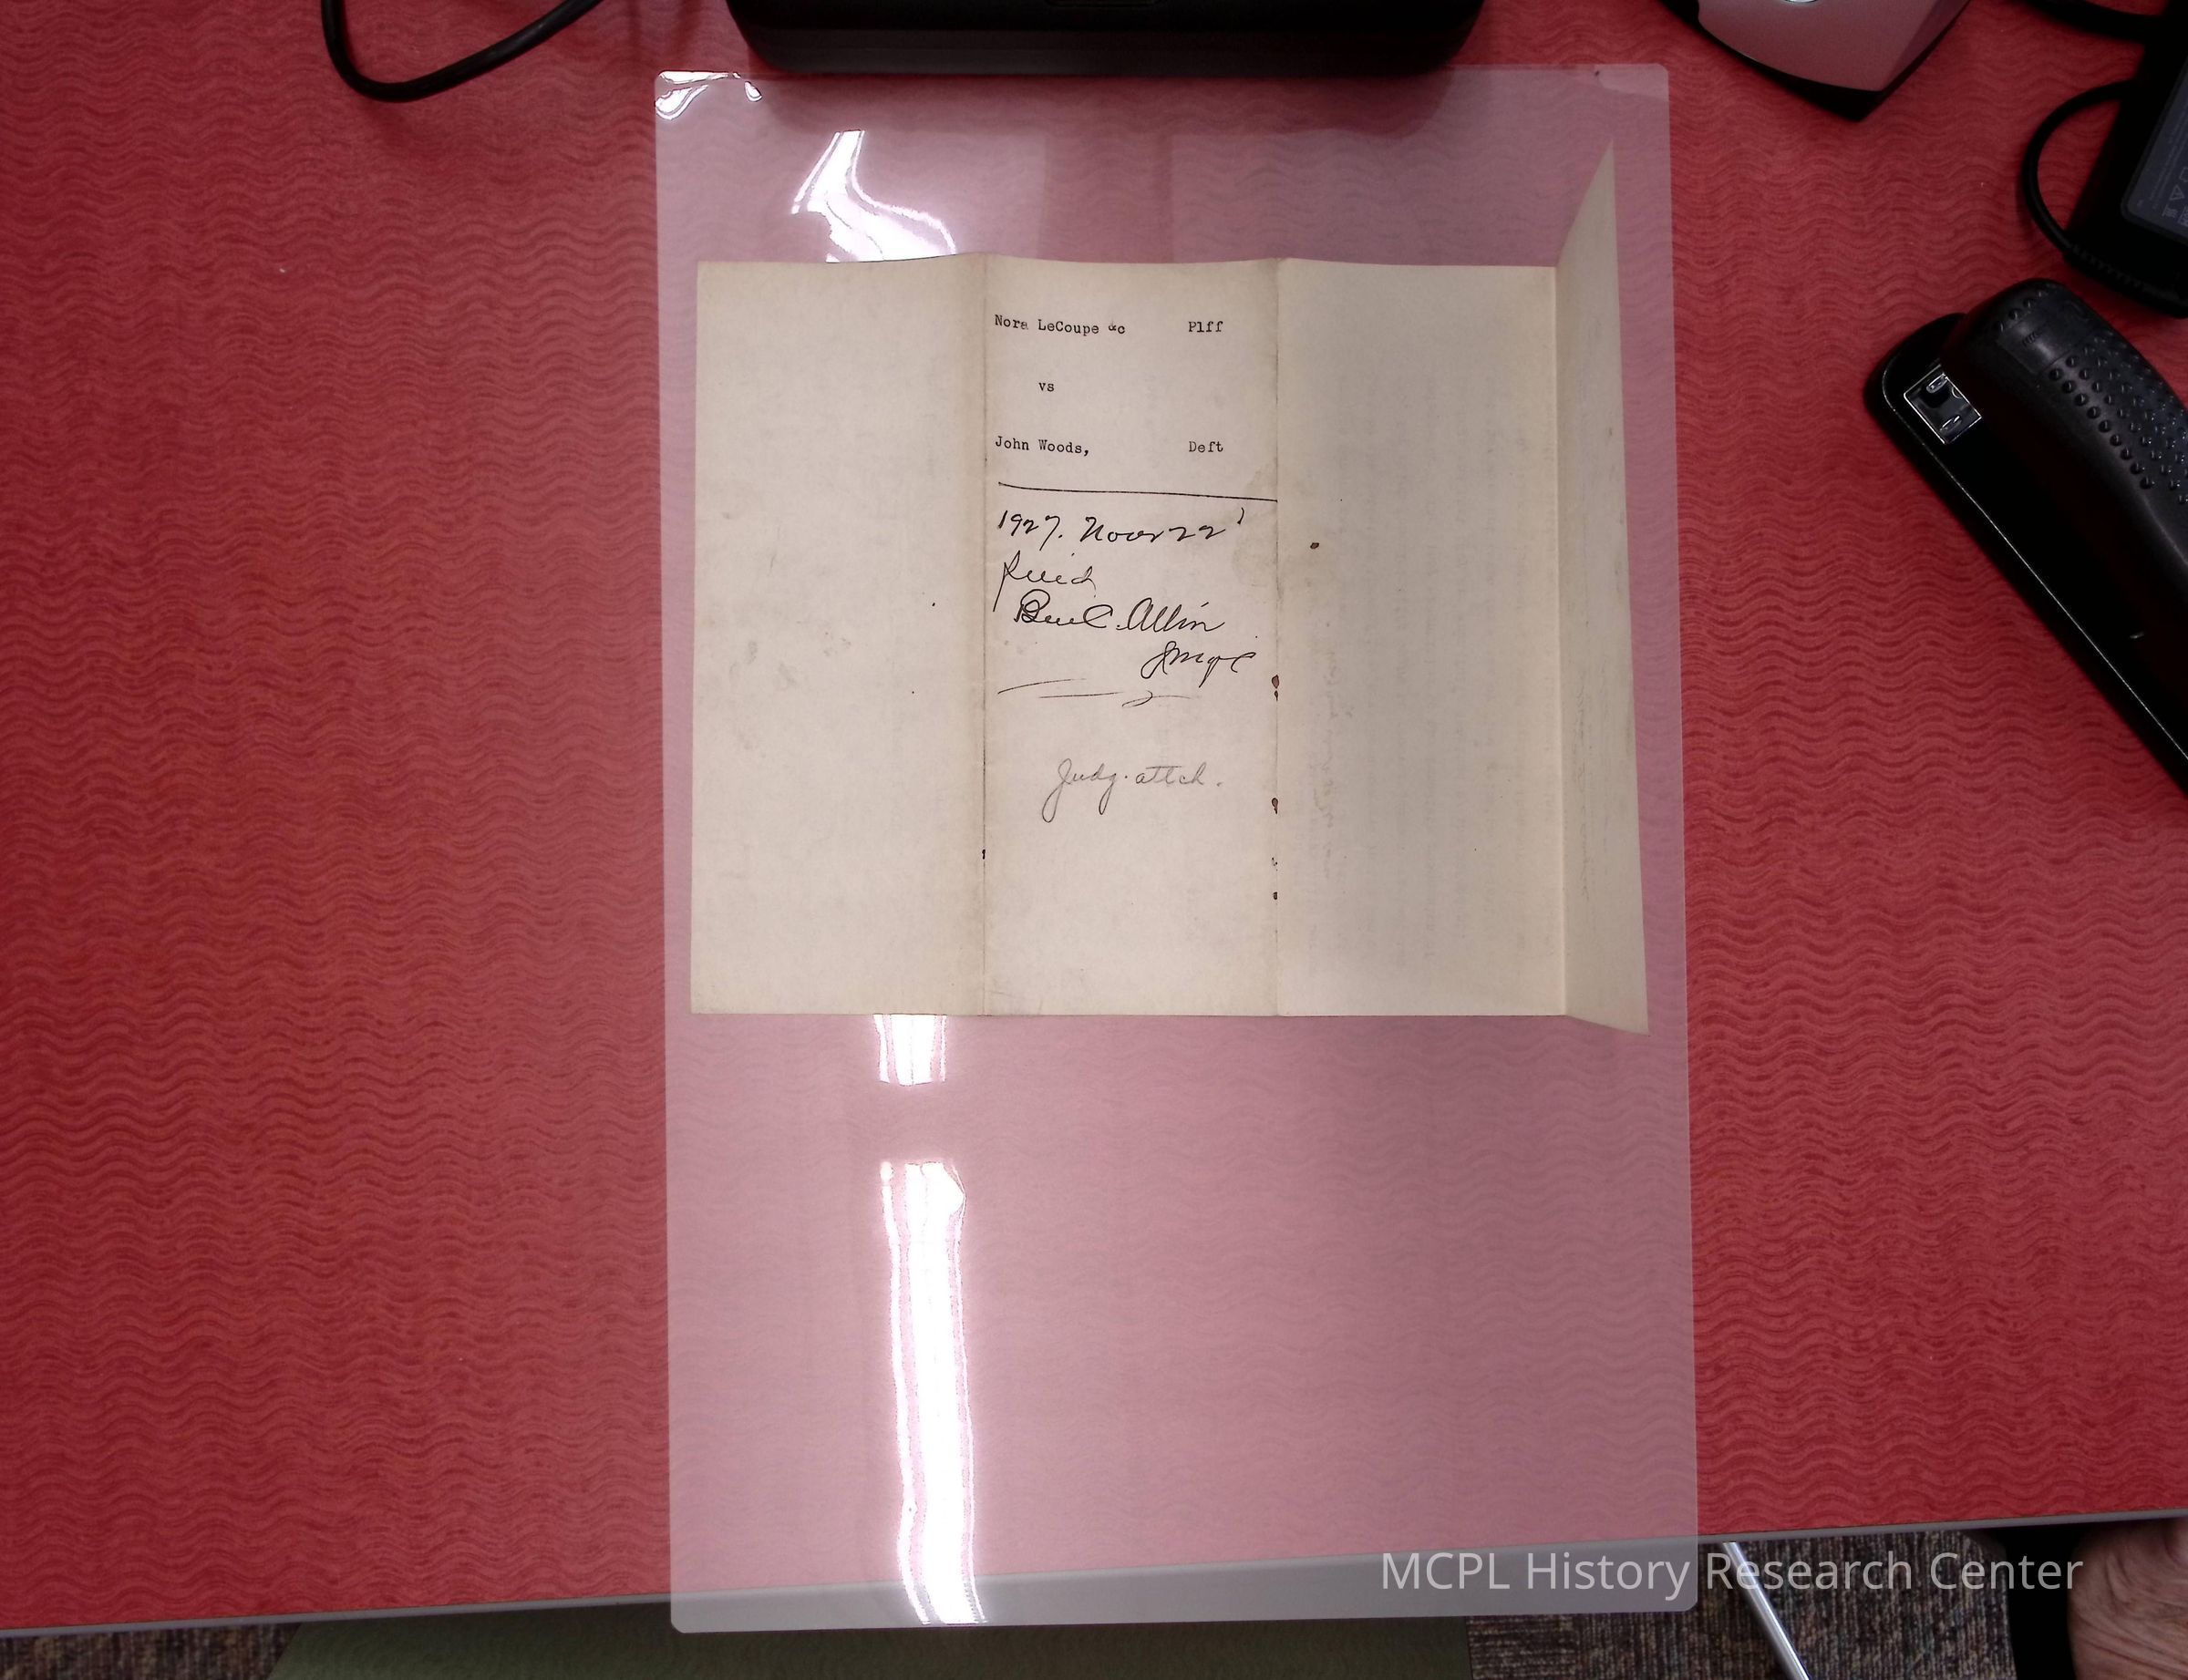 Nora LeCoupe &c Plff
vs
John Woods, Deft
1927. Novr 22
filed
Ben C. Allin
Judg. attch.
MCPL History Research Center